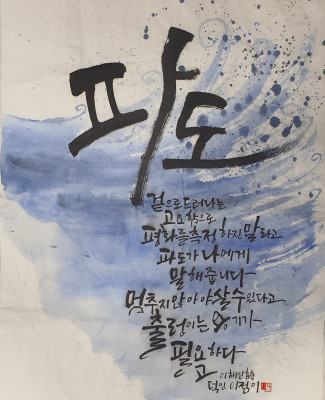 파도
겉으로드러나는
고요함으로
평화를측정하진말라고
파도가나에게
말해줍니다
멈추지않아야살수있다고
출렁이는용기가
필요하다
고
이해인님의
덕인이점이